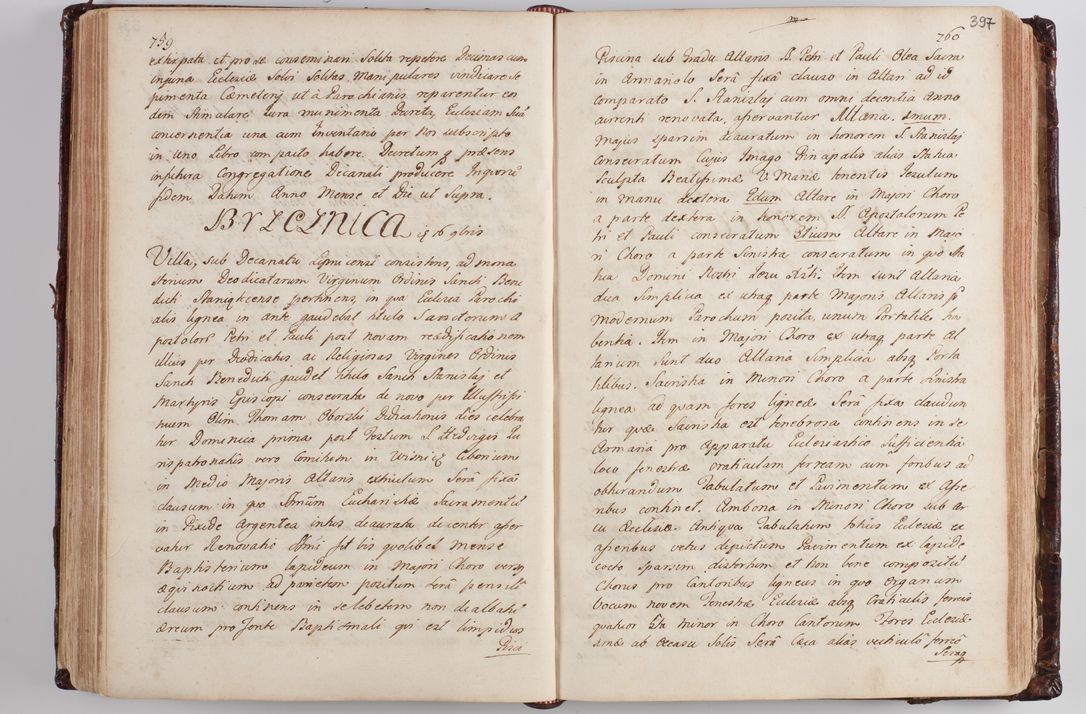 759
extirpata et pro se conseminari solita repetere Decimas cum
injuria Ecclesiæ Solvi Solitas Manipulares vindicare Se
pimenta Cæmeterij ut à Parochianis reparentur eos
dem Stimulare Jura munimenta Decreta, Ecclesiam Suã
concernentia una cum Inventario per Nos subscripto
in uno Libro compacto habere. Decretum q præsens
in futura Congregatione Decanali producere In quorũ
fidem Datum Anno Mense et Die ut Supra.
BRZEZNICA
Villa, sub Decanatu Lipnicensi consistens, ad mona
sterium Deo dicatarum Virginum Ordinis Sancti Bene
dicti Staniątcense pertinens, in qua Ecclesia Parochi
alis lignea in ante gaudebat titulo Sanctorum A
postolorũ Petri et Pauli post novam reædificationem
illius per Prædicatas ac Religiosas Virgines Ordinis
Sancti Benedicti gaudet titulo Sancti Stanislaj et
Martyris Episcopi consecrata de novo per Illustrissi
mum Olim Thomam Oborski Dedicationis dies celebra
tur Dominica prima post Festum S. Hedvigis Ju
rispatronatus vero Comitum in Wisnicz Ciborium
in Medio Majoris Altaris extructum Serã fixã
clausum in quo Ssmũm Eucharistiæ Sacramentũ
in Pixide Argentea intus deaurata decenter asser
vatur Renovatio Ssmi fit bis quolibet mense
Baptisterium lapideum in Majori Choro versq
æquinoctium ad parietem positum Serã pensili
clausum continens in se lebetem non dealbatũ
æreum pro fonte Baptismali qui est limpidus
Pisci

397
760
Piscina sub Gradu Altaris S. Petri et Pauli Olea Sacra
in Armariolo Serã fixã clauso in Altari ad id
comparato S. Stanislaj cum omni decentia Anno
currenti renovata, asservantur Altaria. 1mum.
Majus sparsim deauratum in honorem S. Stanislaj
Consecratum Cujus Imago Principalis alias Statua
Sculpta Beatissimæ V. Mariæ tenentis Jesulum
in manu dextera 2dum Altare in Majori Choro
a parte dextera in honorem SS. Apostolorum Pe
tri et Pauli consecratum 3tium Altare in Majo
ri Choro a parte Sinistra consecratum in quo Sta
tua Domini Nostri Jesu Xsti. Itm sunt Altaria
duo Simplicia ex utraq parte Majoris Altaris p
modernum Parochum posita, unum Portatile ha
bentia. Itm in Majori Choro ex utraq parte Al
tarium Sunt duo Altaria Simplicia absq Porta
tilibus. Sacristia in Minori Choro a parte Sinistra
lignea ad quam fores ligneæ Serã fixã claudun
tur quæ Sacristia est tenebrosa continens in se
Armaria pro Apparatu Ecclesiastico Sufficientia
loco fenestræ craticulam ferream cum foribus ad
obturandum Tabulatum et Pavimentum ex asse
ribus continet. Ambona in Minori Choro sub Ar
cu Ecclesiæ. Antiqua Tabulatum totius Ecclesiæ ex
asseribus vetus depictum Pavimentum ex lapide
cocto sparsim distortum et non bene compositũ
Chorus pro Cantoribus ligneus in quo Organum
Vocum novem Fenestræ Ecclesiæ absq Craticulis ferreis
quatuor 5ta minor in Choro Cantorum Fores Ecclesiæ
unæ ab Occasu Solis Serã Cæca alias vecticulo ferreo
Seraq